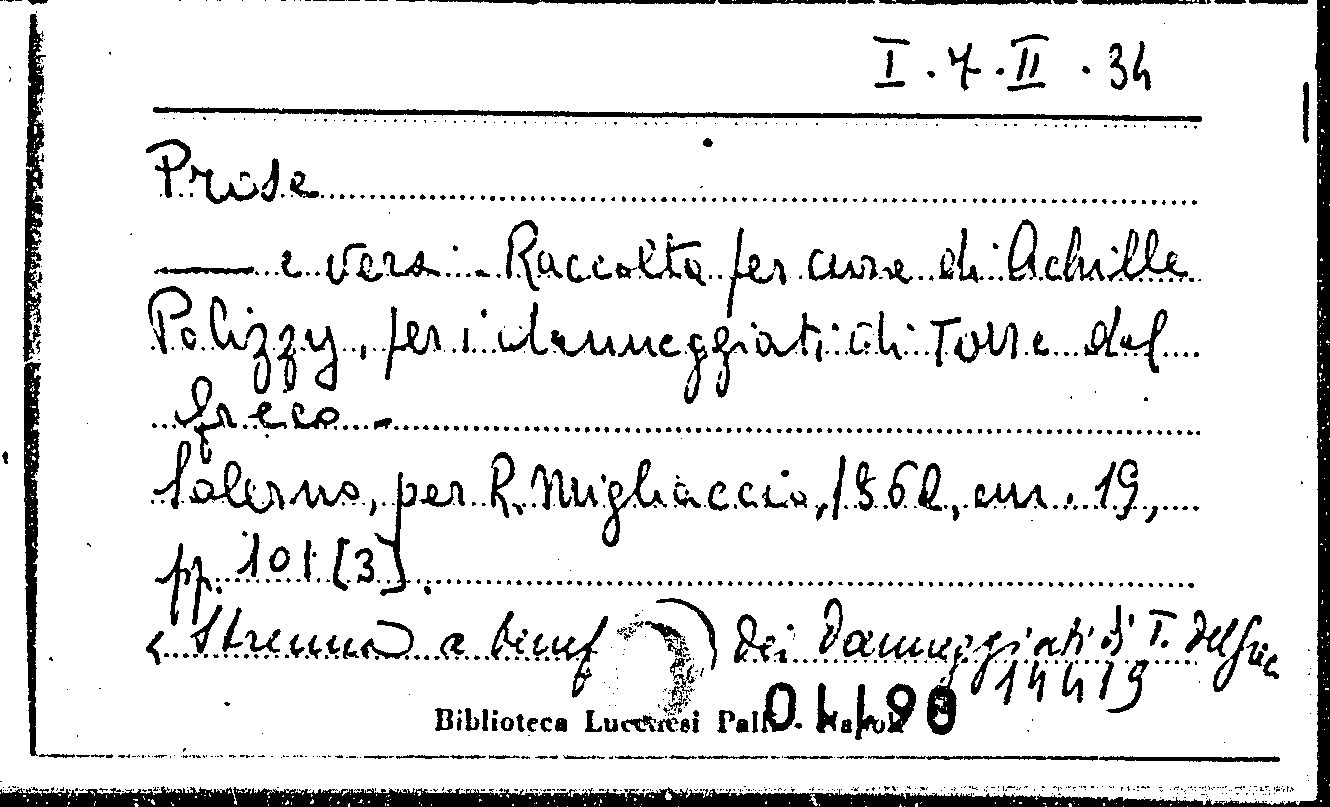 I.7.II.34
Prose
—— e versi - Raccolta per cura di Achille
Polizzy, per i danneggiati di Torre del
Greco -
Salerno, per R. Migliaccio, 1862, cm. 19,
pp. 101 [3].
Strenna a benef dei Danneggiati di T. Del Grec
14419
Biblioteca Lucchesi Palli - Napoli